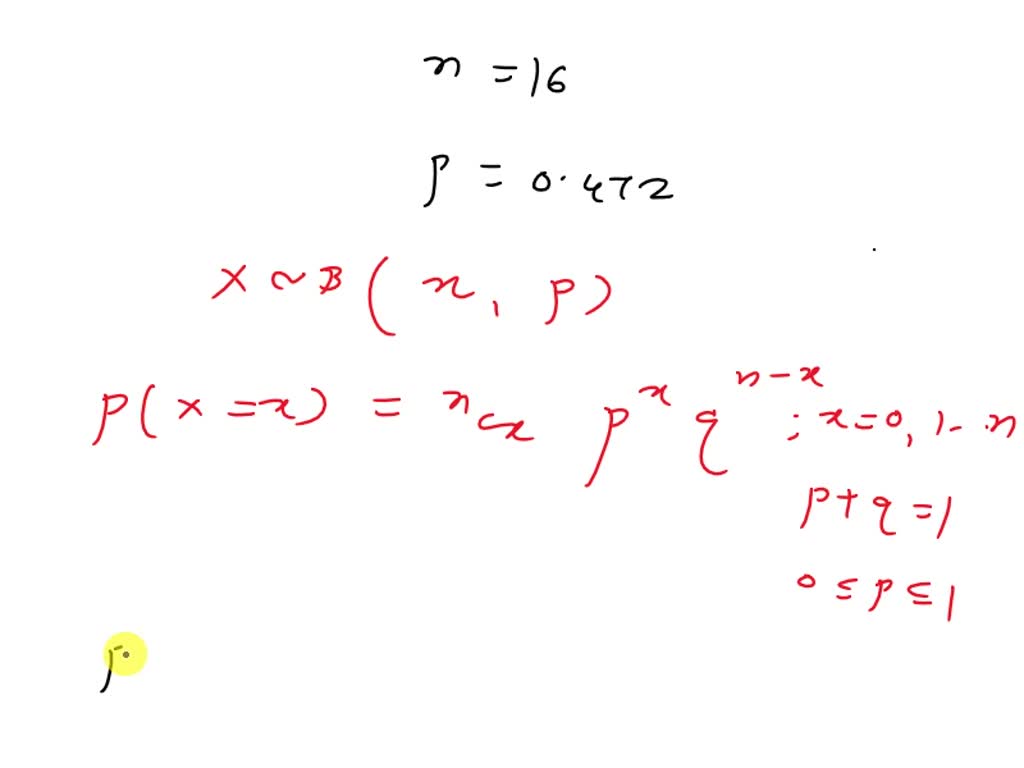 n = 16
p = 0.472
X ~ B ( n, p )
P( x = x ) = ⁿCₓ pˣ qⁿ⁻ˣ ; x = 0, 1 - . n
p + q = 1
0 ≤ p ≤ 1
p